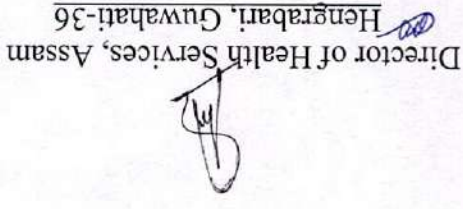 Director of Health Services, Assam
Hengrabari, Guwahati-36